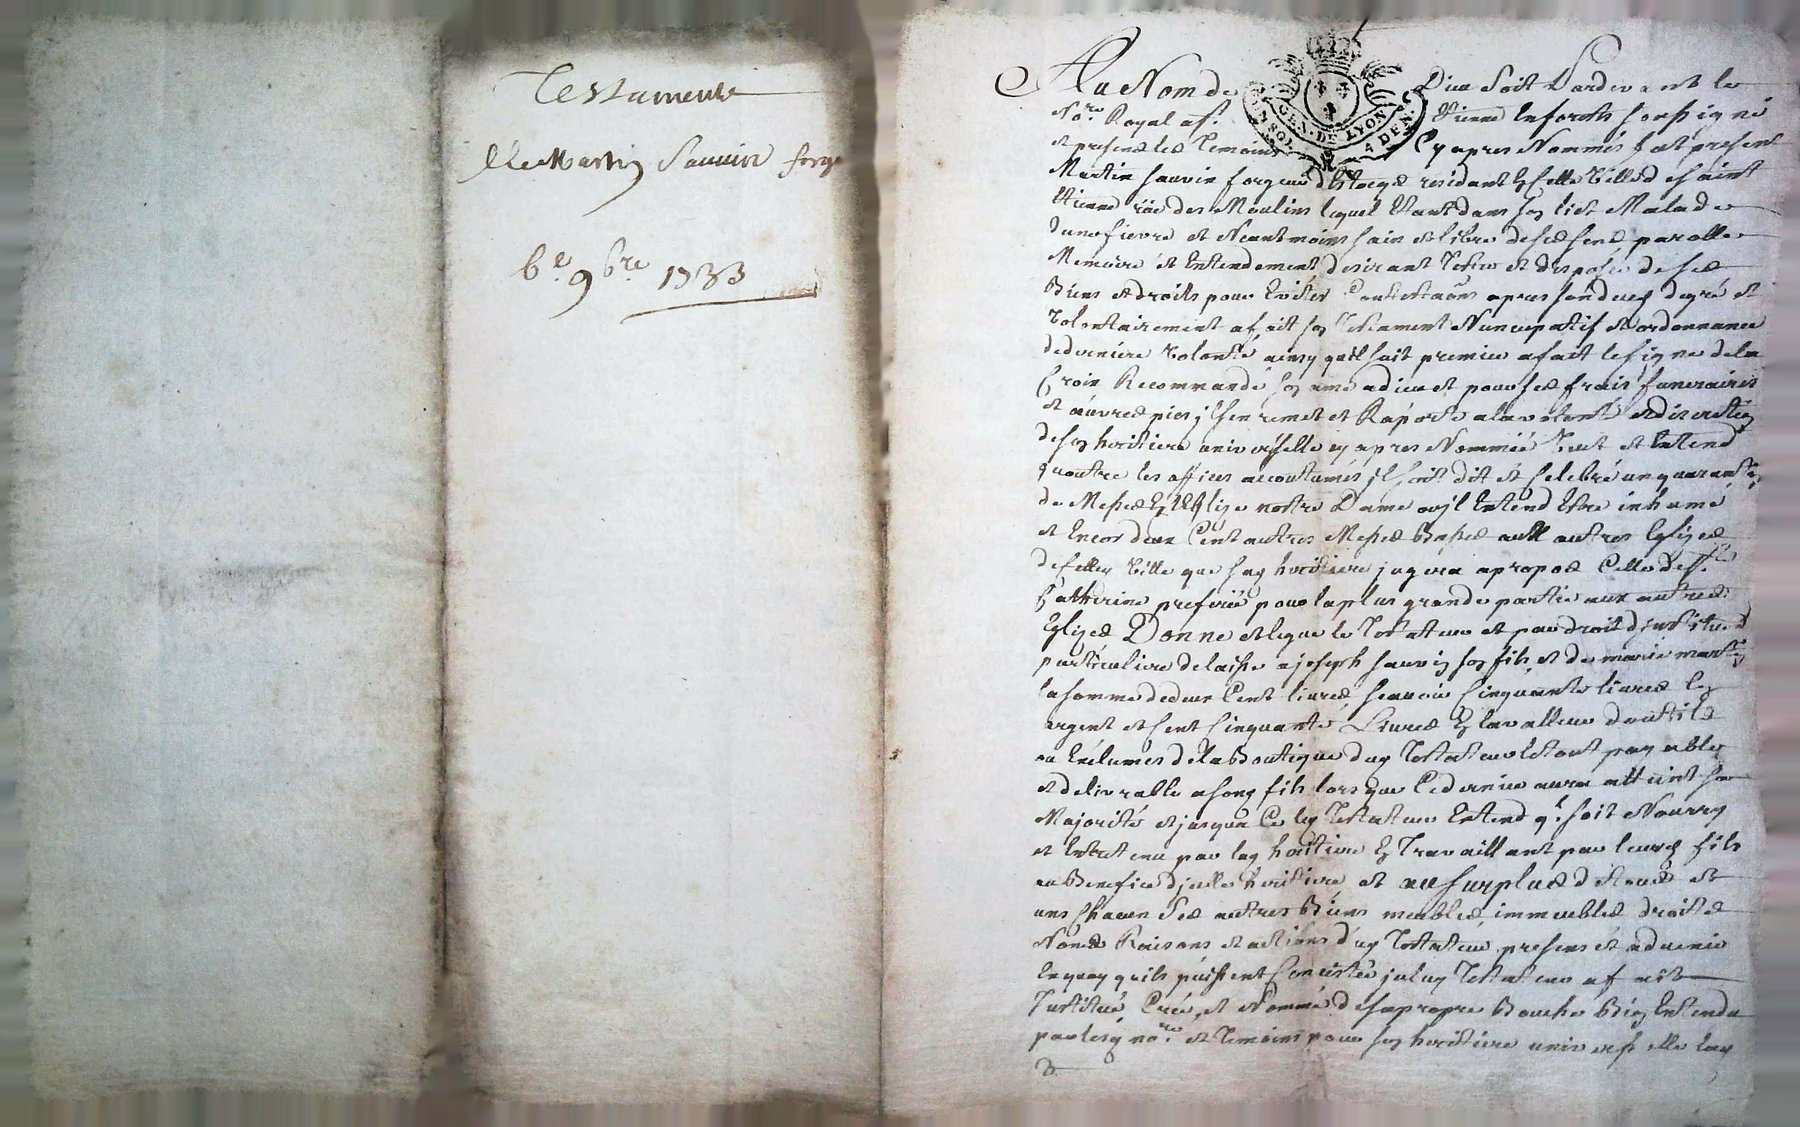 Testament
De Martin Sauvin forgeur
6e 9bre 1733
GEN. DE LYON
Au Nom de Dieu Soit Pardevant le
No.re Royal a St. Etienne en forests soussigné
et presence des Temoins Cy apres Nommés fut present
Martin sauvin forgeur residant en cette Ville de saint
Etienne rüe des Moulins lequel Etant dans son lict Malade
dune fievre et Neantmoins sain et libre de ses sens parolle
Memoire et Entendement desirant Tester et disposer de ses
Biens et droits pour Eviter Contestaõns apres son deces de gré et
Volontairement a fait son Testament Nuncupatif et ordonnance
de derniere Volonté ainsy quil suit premier a fait le signe de la
Croix Recommandé son ame a dieu et pour ses frais funeraires
et œuvres pies jl sen remet et Raporte a la volonté et discretion
de son heritiere universelle cy apres Nommée Veut et Entend
quoutre les offices accoutumés jl soit dit et celebré un quarantin
de Messes En l'Eglise nostre Dame ou jl Entend Etre inhumé
et Encor deux Cent autres Messes Basses aux autres Eglises
de cette Ville que son heritiere jugera a propos Celle de Ste
Catherine preferée pour la plus grande partie aux autres
Eglises Donne et legue le Testateur et par droit d'institution
particuliere delaisse a joseph sauvin son fils et de marie martin
la somme de deux Cent livres scavoir Cinquante livres En
argent et Cent Cinquante Livres En la valleur doutils
ou Enclumes de la Boutique dud Testateur le tout payable
et delivrable a son fils lorsque Ce dernier aura atteint sa
Majorité et jusqua Ce led Testateur Entend ql. soit Nourry
et Entretenu par lad heritiere En Travaillant par leurd fils
au Benefice d'jcelle heritiere et au surplus de tous et
uns Chacun Ses autres Biens meubles immeubles droits
Noms Raisons et actions dud Testateur presens et advenir
En quoy quils puissent Consister jceluy Testateur a fait
Institué Créé, et Nommé de sa propre Bouche Bien Entendu
par lesd no.re et Temoins pour son heritiere universelle